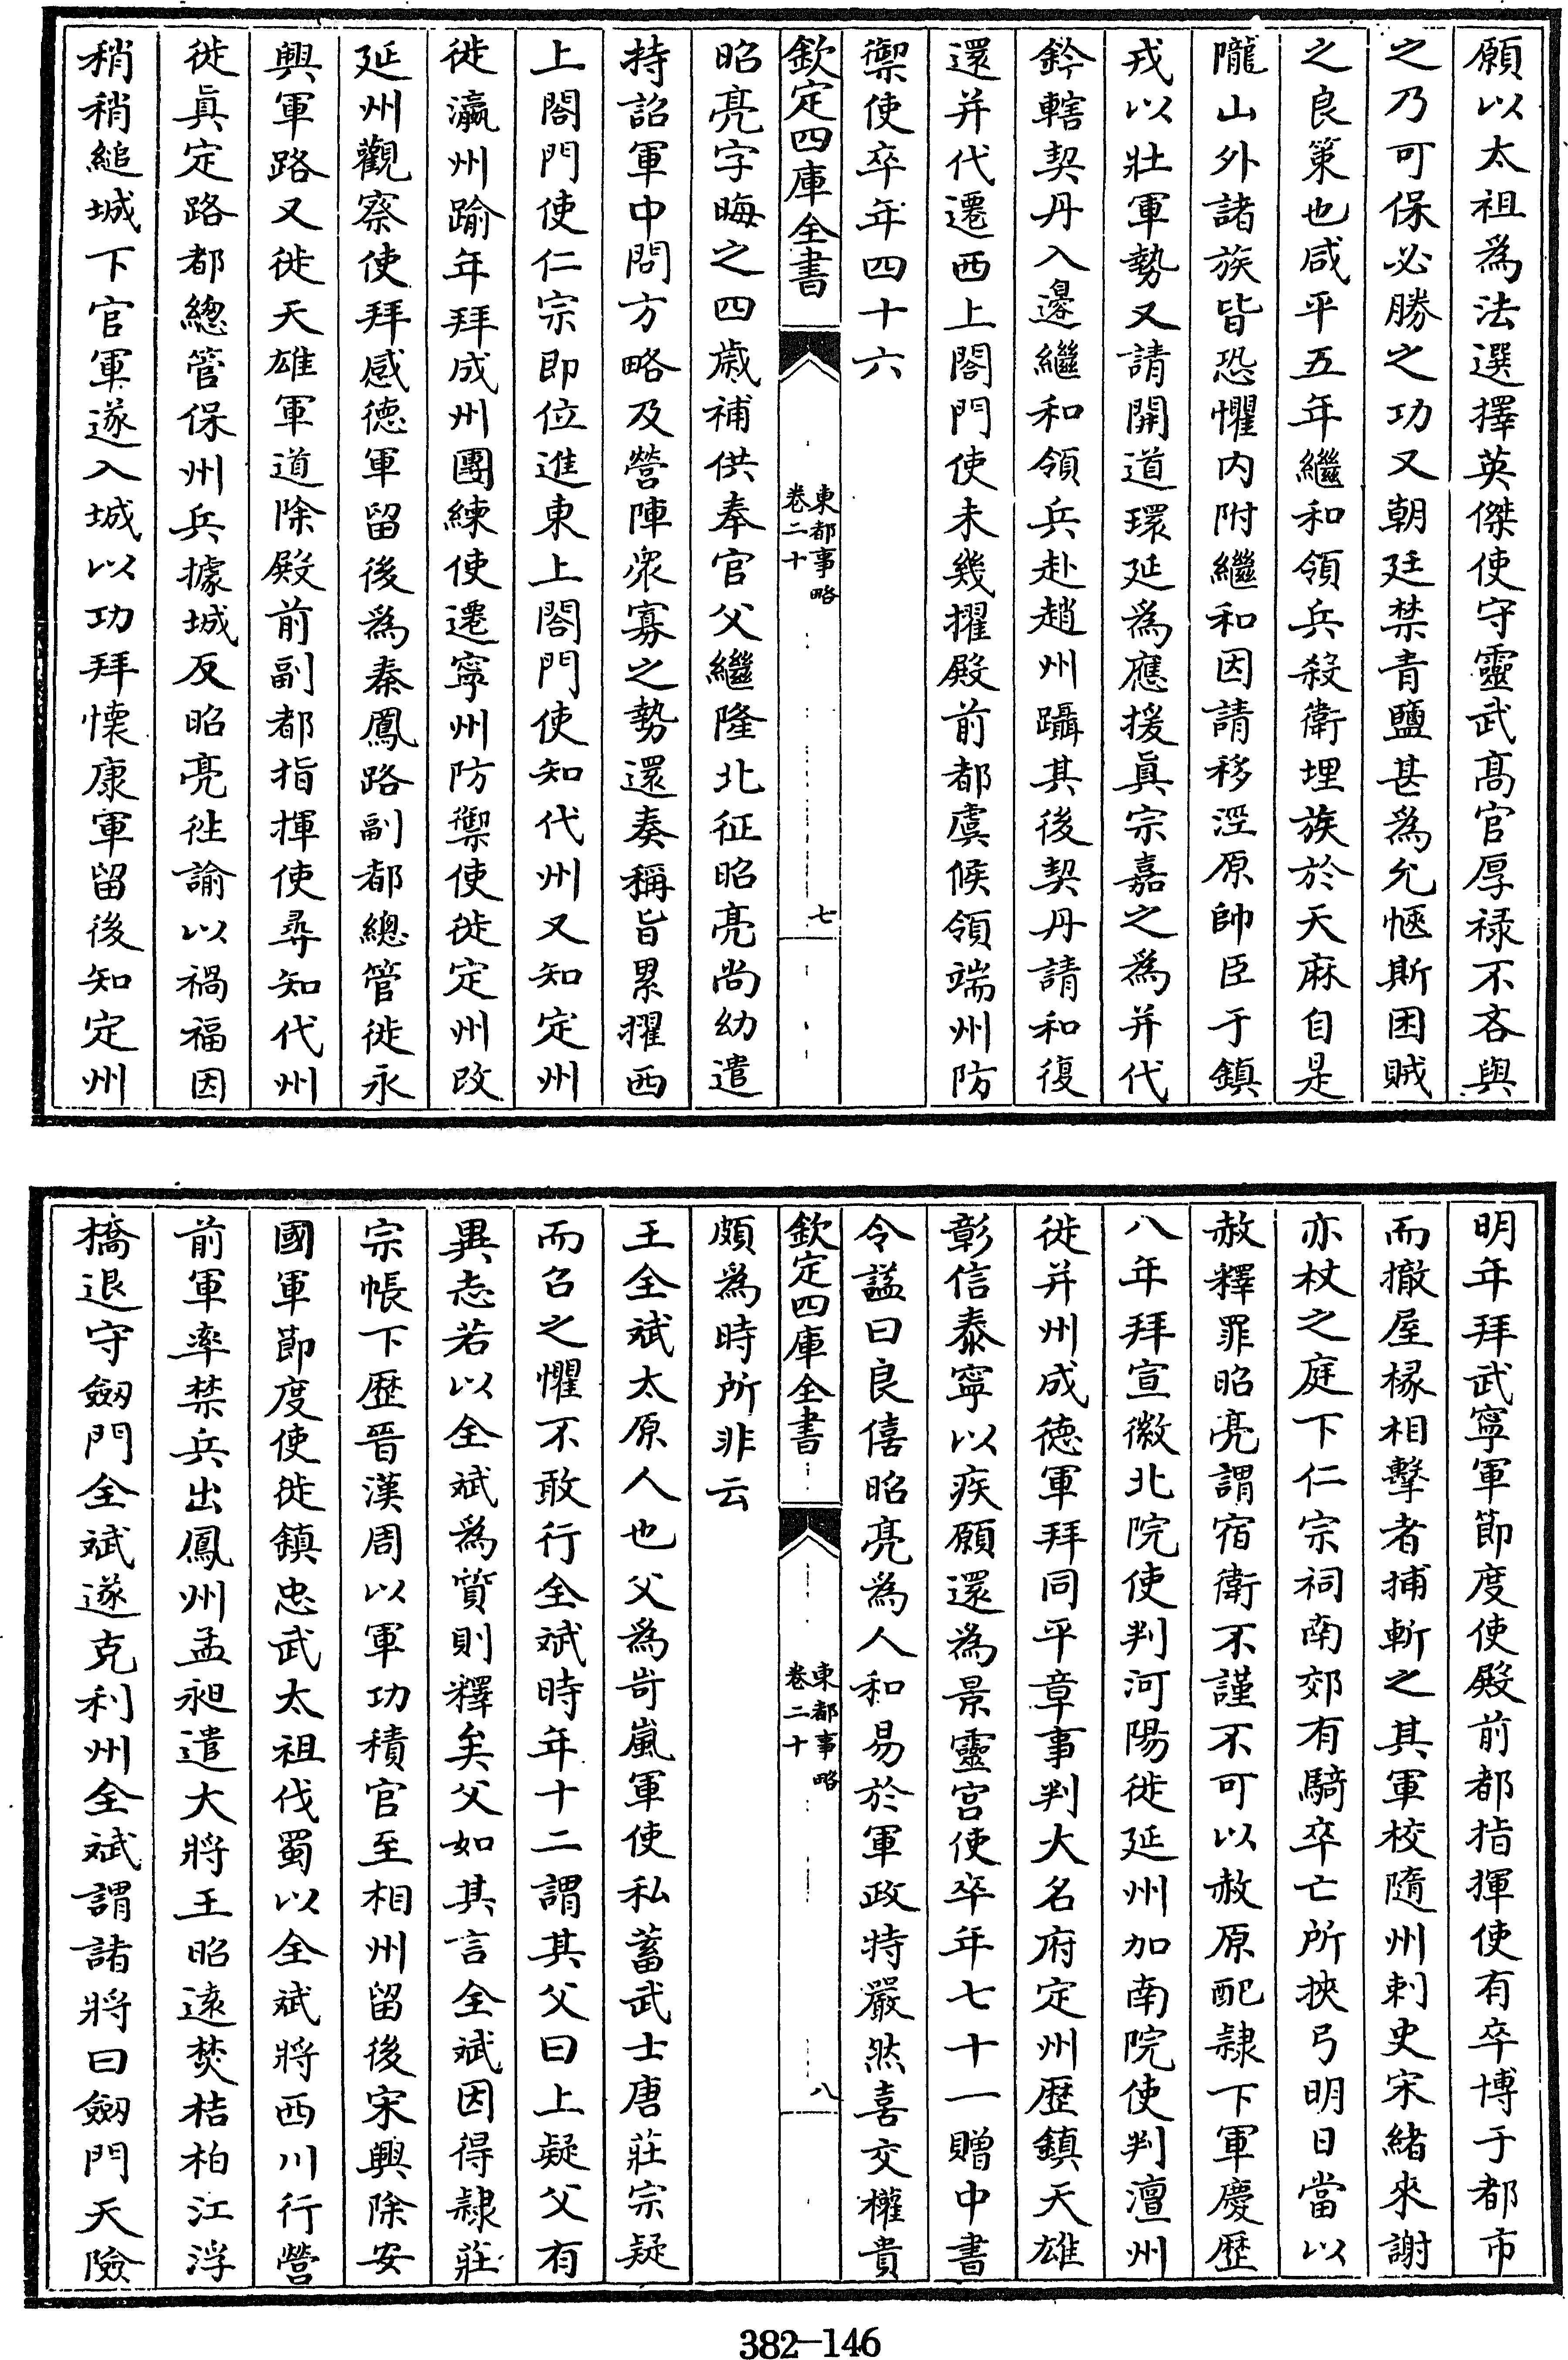 願以太祖為法選擇英傑使守靈武髙官厚禄不吝與
之乃可保必勝之功又朝廷禁青鹽甚為允愜斯困賊
之良策也咸平五年繼和領兵殺衛埋族於天麻自是
隴山外諸族皆恐懼内附繼和因請移涇原帥臣于鎮
戎以壯軍勢又請開道環延為應援眞宗嘉之為并代
鈐轄契丹入邊繼和領兵赴趙州躡其後契丹請和復
還并代遷西上閤門使未幾擢殿前都虞候領端州防
禦使卒年四十六
欽定四庫全書
東都事略
卷二十
七
昭亮字晦之四歳補供奉官父繼隆北征昭亮尚幼遣
持詔軍中問方略及營陣衆寡之勢還奏稱旨累擢西
上閤門使仁宗即位進東上閤門使知代州又知定州
徙瀛州踰年拜成州團練使遷寧州防禦使徙定州改
延州觀察使拜感德軍留後為秦鳳路副都總管徙永
興軍路又徙天雄軍道除殿前副都指揮使尋知代州
徙眞定路都總管保州兵據城反昭亮徃諭以禍福因
稍稍縋城下官軍遂入城以功拜懷康軍留後知定州
明年拜武寧軍節度使殿前都指揮使有卒博于都市
而撤屋椽相擊者捕斬之其軍校隨州刺史宋緒來謝
亦杖之庭下仁宗祠南郊有騎卒亡所挾弓明日當以
赦釋罪昭亮謂宿衛不謹不可以赦原配隷下軍慶歴
八年拜宣徽北院使判河陽徙延州加南院使判澶州
徙并州成德軍拜同平章事判大名府定州歴鎮天雄
彰信泰寧以疾願還為景靈宫使卒年七十一贈中書
令諡曰良僖昭亮為人和易於軍政特嚴然喜交權貴
欽定四庫全書
東都事略
卷二十
八
頗為時所非云
王全斌太原人也父為岢嵐軍使私蓄武士唐莊宗疑
而召之懼不敢行全斌時年十二謂其父曰上疑父有
異志若以全斌為質則釋矣父如其言全斌因得隷莊
宗帳下歴晉漢周以軍功積官至相州留後宋興除安
國軍節度使徙鎮忠武太祖伐蜀以全斌將西川行營
前軍率禁兵出鳳州孟昶遣大將王昭遠焚桔柏江浮
橋退守劒門全斌遂克利州全斌謂諸將曰劒門天險
382-146